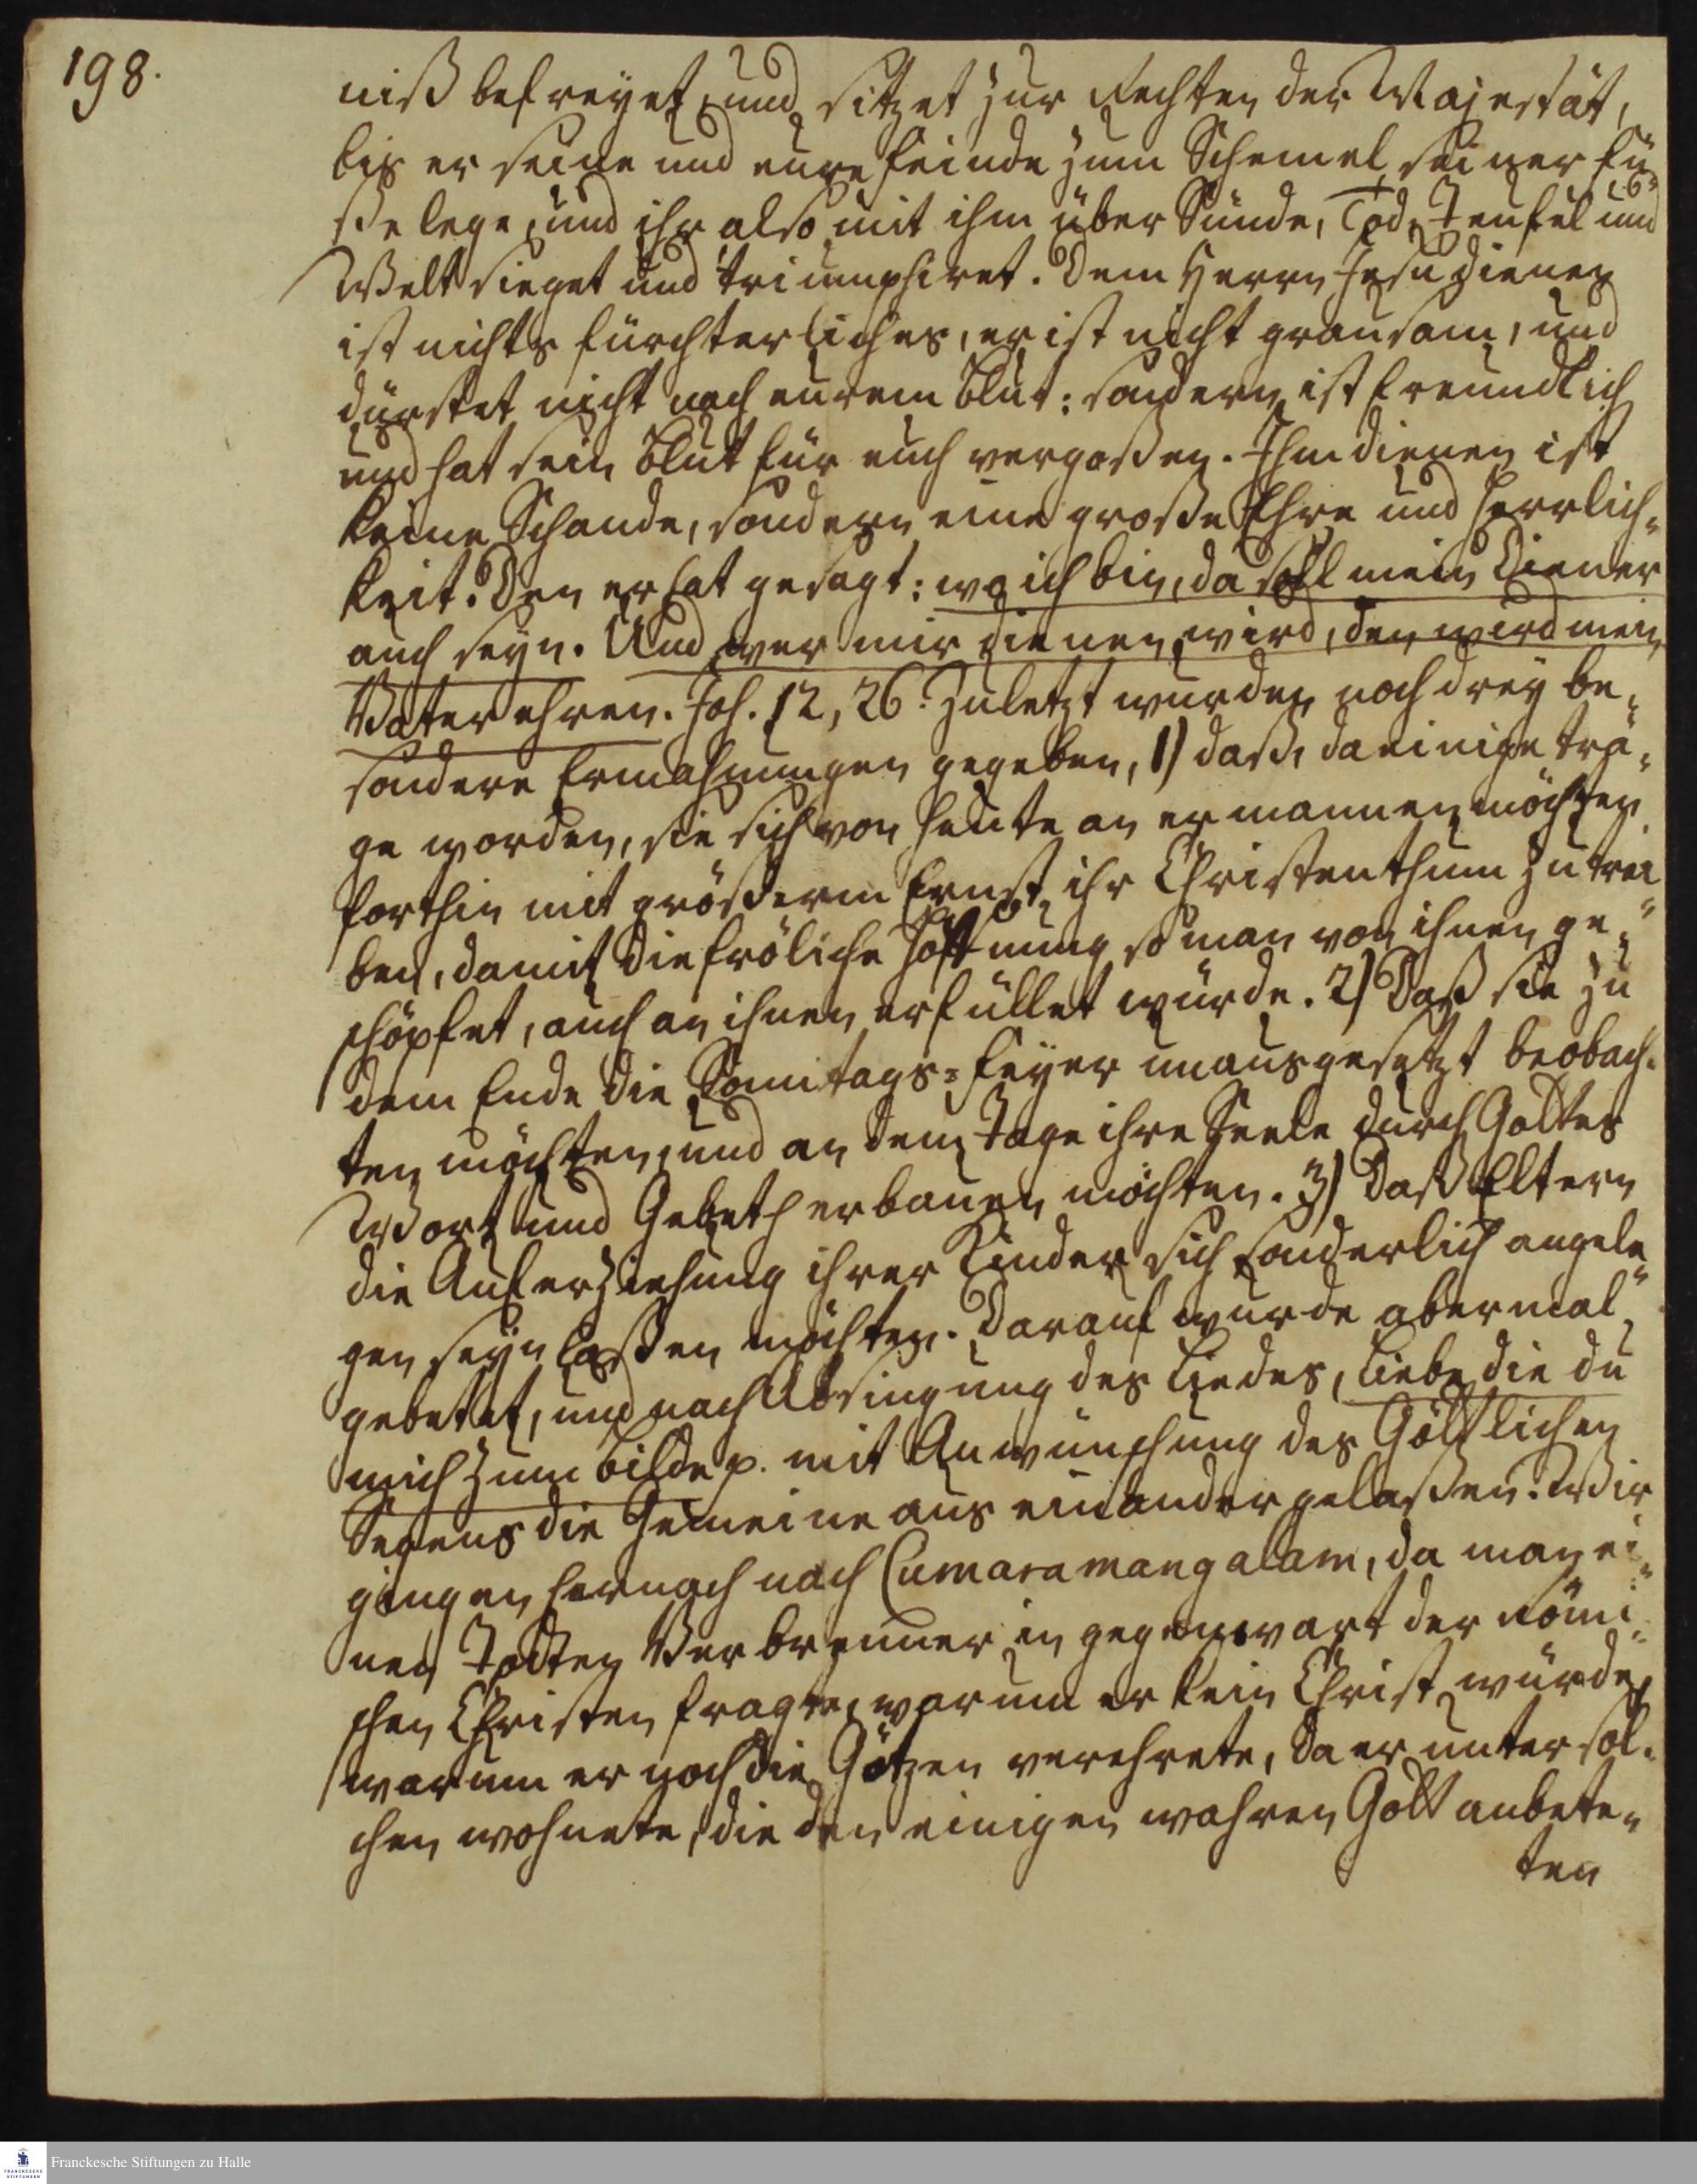 198.
niß befreyet, und sitzet zur Rechten der Majestät,
bis er seine und eure Feinde zum Schemel seiner Fü-
ße lege, und ihr also mit ihm über Sünde, Tod, Teufel und
Welt sieget und triumphiret. Dem Herrn Jesu dienen
ist nichts fürchterliches, er ist nicht grausam, und
dürstet nicht nach eurem Blut: sondern ist freundlich
und hat sein Blut für euch vergoßen. Ihm dienen ist
keine Schande, sondern eine große Ehre und Herrlich-
keit. Den er hat gesagt: wo ich bin, da soll mein Diener
auch seyn. Und wer mir dienen wird, den wird mein
Vater ehren. Joh. 12, 26. Zuletzt wurden noch drey be-
sondere Ermahnungen gegeben, 1) daß, da einige trä-
ge worden, sie sich von heute an ermannen möchten
forthin mit größerm Ernst ihr Christenthum zu trei-
ben, damit die fröliche Hoffnung so man von ihnen ge-
schöpfet, auch an ihnen erfüllet würde. 2) Daß sie zu
dem Ende die Sonntags-Feyer unausgesetzt beobach-
ten möchten, und an dem Tage ihre Seele durch Gottes
Wort und Gebeth erbauen möchten. 3) Daß Eltern
die Auferziehung ihrer Kinder sich sonderlich angele-
gen seyn laßen möchten. Darauf wurde abermal
gebetet, und nach Absingung des Liedes, Liebe die du
mich zum Bilde p. mit Anwünschung des Göttlichen
Segens die Gemeine aus einander gelaßen. Wir
gingen hernach nach Cumaramangalam, da man ei-
nen Todten Verbrenner in gegenwart der Römi-
schen Christen fragte, warum er kein Christ würde,
warum er noch die Götzen verehrete, da er unter sol-
chen wohnete, die den einigen wahren Gott anbete-
ten
Franckesche Stiftungen zu Halle